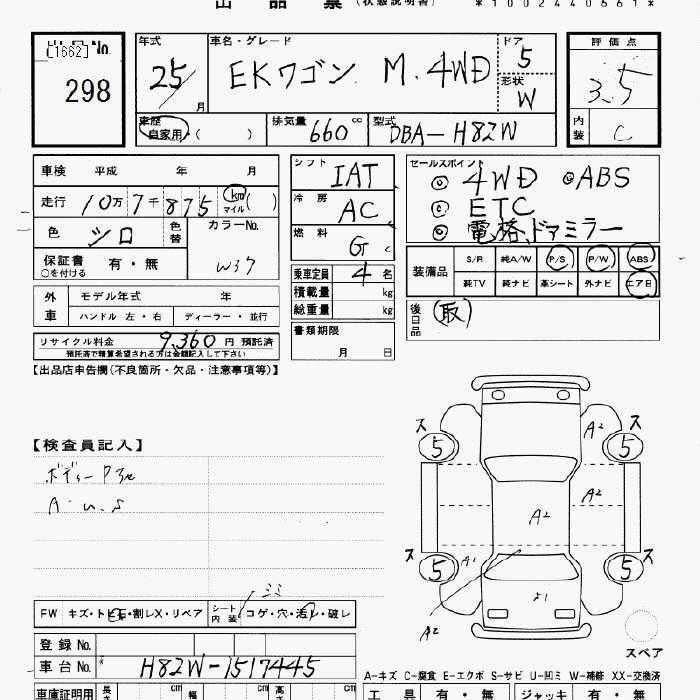 出品票 (状態説明書) *1002440661*
出品No.
[1662]
298
年式 車名・グレード ドア
25 EKワゴン M. 4WD 5
月 形状
W
車歴 排気量 型式
自家用・( ) 660 cc DBA-H82W
評価点
3.5
内装 C
車検 平成 年 月
走行 10万7千875 km マイル ( )
色 シロ 色替 カラーNo.
W37
保証書 有・無
○を付ける
シフト IAT
冷房 AC
燃料 G
乗車定員 4 名
積載量 kg
総重量 kg
書類期限
月 日
セールスポイント
◎ 4WD ◎ABS
◎ ETC
◎ 電格ドアミラー
装備品 S/R 純A/W P/S P/W ABS
純TV 純ナビ 革シート 外ナビ エアB
後日品 取
外車 モデル年式 年
ハンドル 左・右 ディーラー・並行
リサイクル料金 9,360 円 預託済
預託済で精算希望される方は金額記入して下さい
【出品店申告欄(不良箇所・欠品・注意事項等)】
【検査員記入】
A・U.S
ス ス
5 5
A2
A2
A2
ス ス
5 5
A1
A2
スペア
FW キズ・トビ石・割レX・リペア シート内装 コゲ・穴・汚レ・破レ
登録No.
車台No. * H82W-1517445
車庫証明用 長さ cm 幅 cm 高さ cm
A-キズ C-腐食 E-エクボ S-サビ U-凹ミ W-補修 XX-交換済
工具 有・無 ジャッキ 有・無